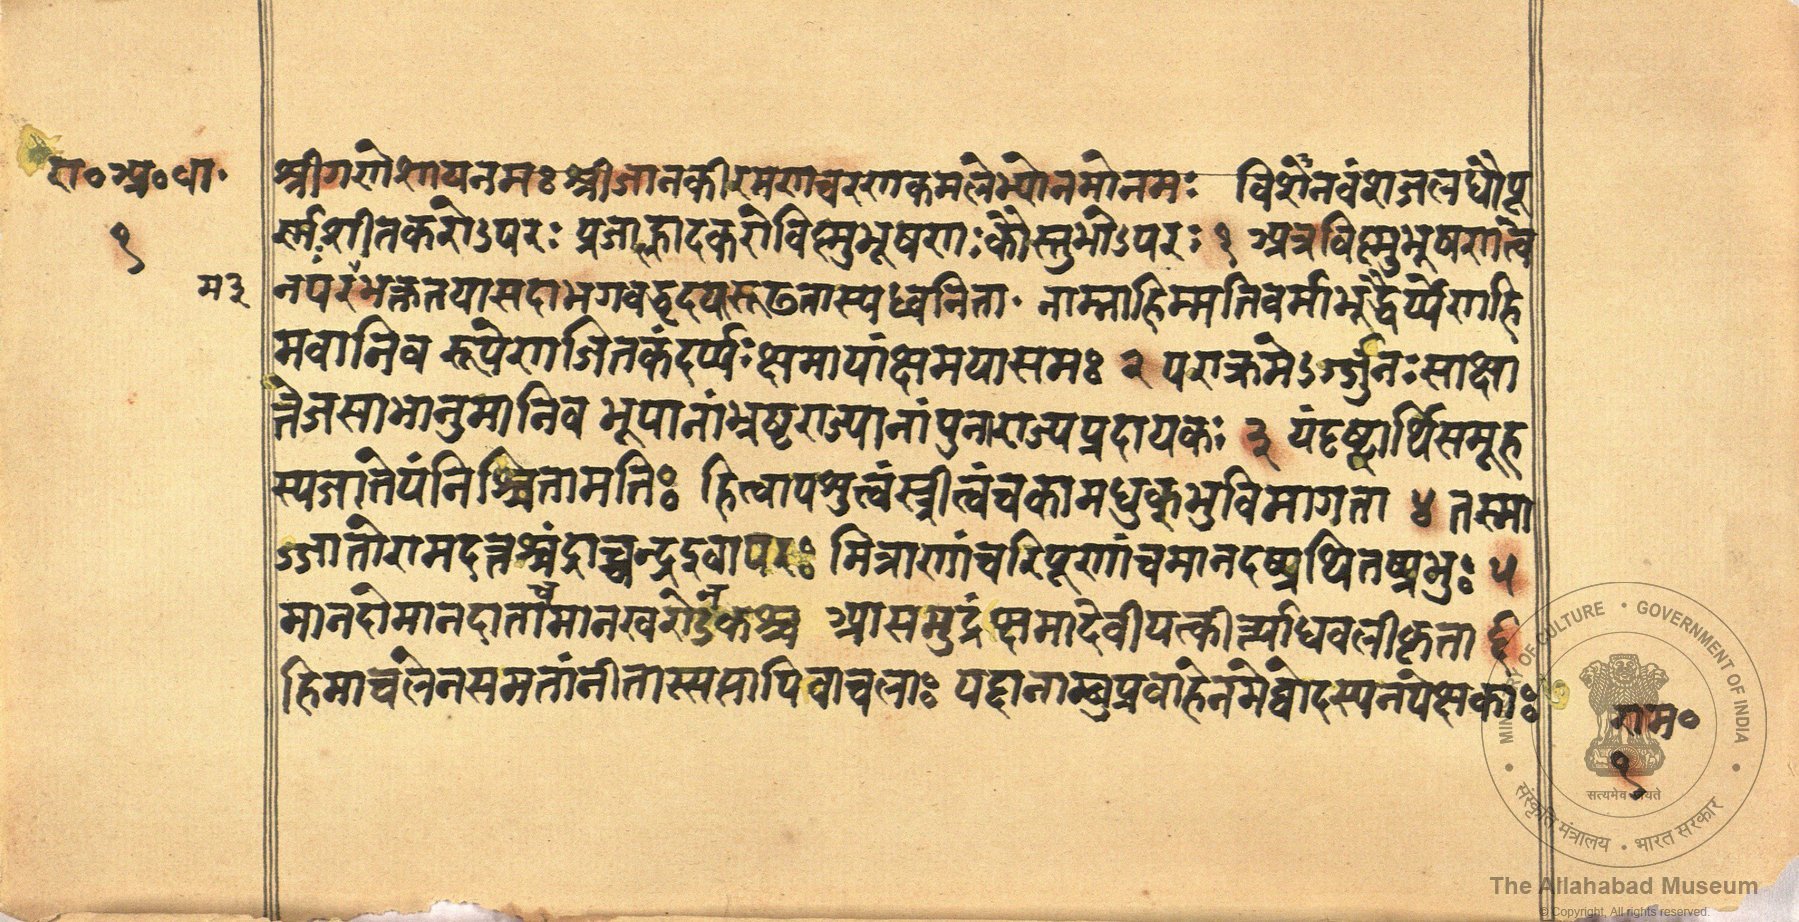 रा० अ० धा०
१
श्रीगणेशायनमः श्रीजानकीरमणचरणकमलेभ्योनमोनमः विशेनवंशजलधौपू
र्णशीतकरोऽपरः प्रजाह्लादकरोविष्णुभूषणःकौस्तुभोऽपरः १ अत्रविष्णुभूषणत्वे
म ३
नपरभक्ततयासदाभगवद्धृदय
ध्वनिता॰ नाम्नाहिम्मतिवर्माभूद्धैर्य्येणहि
मवानिव रूपेणाजितकंदर्प्पःक्षमायांक्षमयासमः २ पराक्रमेऽर्ज्जुनःसाक्षा
त्तेजसाभानुमानिव भूपानांभ्रष्टराज्यानांपुनाराज्यप्रदायकः ३ यंदृष्ट्वार्थिसमूह
स्यजातेयंनिश्चितामतिः हित्वापशुत्वंस्त्रीत्वंचकामधुक्भुविमागता ४ तस्मा
ज्जातोरामदत्तश्चंद्राच्चन्द्रइवापरः मित्राणांचरिपूणांचमानदष्प्रथितष्प्रभुः ५
मानदोमानदातामानखवरोऽकश्च आसमुद्रंक्षमादेवीयत्कीर्त्त्याधवलीकृता ६
हिमाचलेनसमतांनीतास्सप्तापिवाचलाः यद्दानाम्बुप्रवाहेन
राम०
१
सत्यमेव जयते
MINISTRY OF CULTURE • GOVERNMENT OF INDIA
संस्कृति मंत्रालय • भारत सरकार
The Allahabad Museum
© Copyright, All rights reserved.